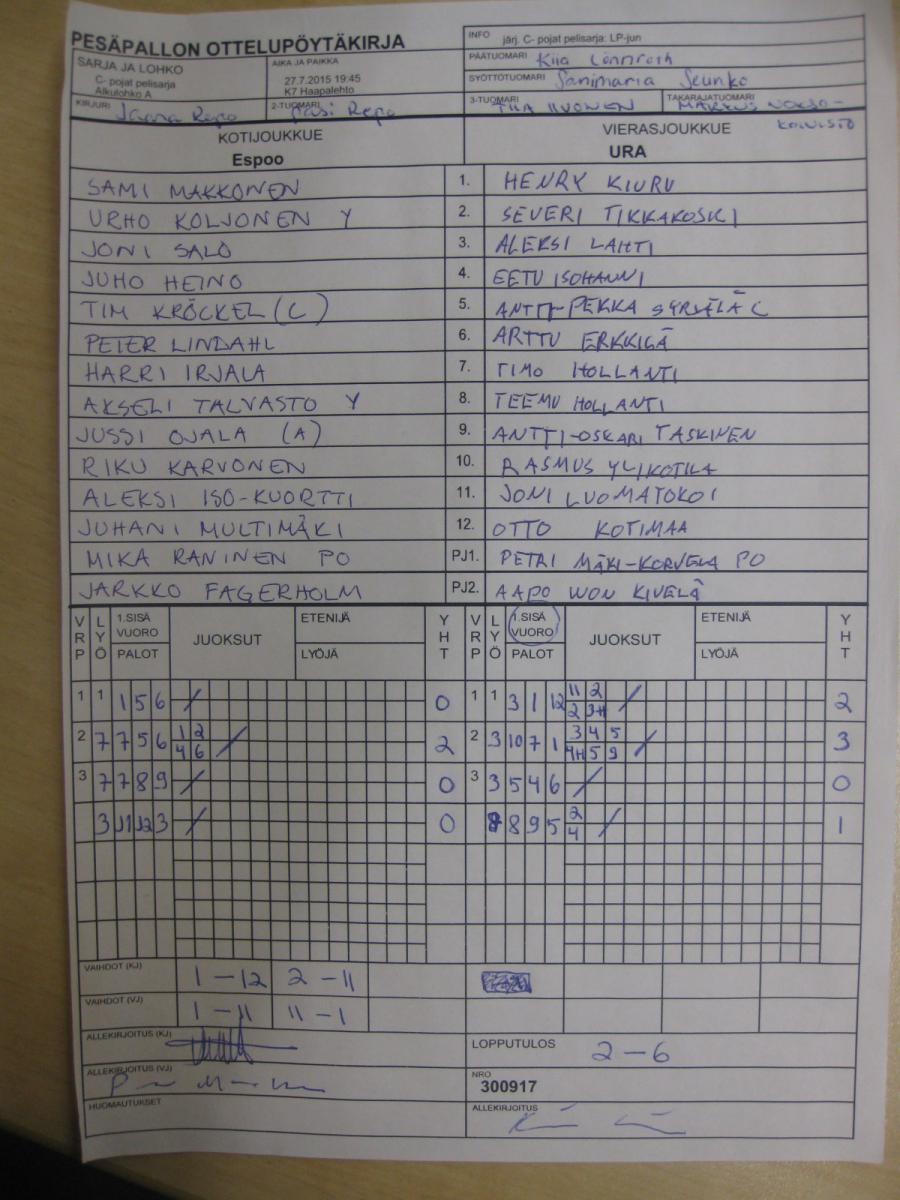 PESÄPALLON OTTELUPÖYTÄKIRJA
INFO järj. C- pojat pelisarja: LP-jun
SARJA JA LOHKO
C- pojat pelisarja
Alkulohko A
AIKA JA PAIKKA
27.7.2015 19:45
K7 Haapalehto
PÄÄTUOMARI Kiia Lönnroth
SYÖTTÖTUOMARI Sanimaria Seunko
KIRJURI Jaana Repo 2-TUOMARI Pasi Repo
3-TUOMARI TIIA IIVONEN TAKARAJATUOMARI MARKKUS NOKSO-
KOIVISTO
KOTIJOUKKUE
Espoo
VIERASJOUKKUE
URA
SAMI MAKKONEN 1. HENRY KIURU
URHO KOLJONEN Y 2. SEVERI TIKKAKOSKI
JONI SALO 3. ALEKSI LAHTI
JUHO HEINO 4. EETU ISOHANNI
TIM KRÖCKEL (C) 5. ANTTI-PEKKA SYRJÄLÄ C
PETER LINDAHL 6. ARTTU ERKKILÄ
HARRI IRJALA 7. TIMO HOLLANTI
AKSELI TALVASTO Y 8. TEEMU HOLLANTI
JUSSI OJALA (A) 9. ANTTI-OSKARI TASKINEN
RIKU KARVONEN 10. RASMUS YLIKOTILA
ALEKSI ISO-KUORTTI 11. JONI LUOMATOKOI
JUHANI MULTIMÄKI 12. OTTO KOTIMAA
MIKA RANINEN PO PJ1. PETRI MÄKI-KORVELA PO
JARKKO FAGERHOLM PJ2. AAPO WON KIVELÄ
VRP LYÖ 1.SISÄ VUORO PALOT JUOKSUT ETENIJÄ LYÖJÄ YHT
VRP LYÖ 1.SISÄ VUORO PALOT JUOKSUT ETENIJÄ LYÖJÄ YHT
1 1 1 5 6 / 0 1 1 3 1 12 11 2 / 2
2 3H
2 7 7 5 6 1 2 / 2 2 3 10 7 1 3 4 5 / 3
4 6 4H 5 9
3 7 7 8 9 / 0 3 3 5 4 6 / 0
3 11 12 3 / 0 8 8 9 5 2 / 1
4
VAIHDOT (KJ) 1 – 12 2 – 11
VAIHDOT (VJ) 1 – 11 11 – 1
ALLEKIRJOITUS (KJ)
LOPPUTULOS 2 – 6
ALLEKIRJOITUS (VJ)
NRO
300917
HUOMAUTUKSET
ALLEKIRJOITUS